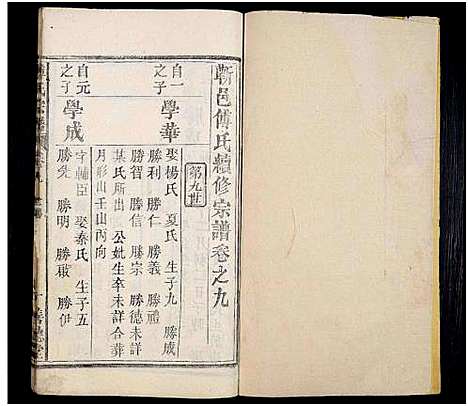 蘄邑傅氏續修宗譜卷之九
第九世
自一之子
學華
娶楊氏 夏氏 生子九 勝成
勝利 勝仁 勝義 勝禮
勝智 勝信 勝宗 勝德未詳
某氏所出 公妣生卒未詳合葬
月形山壬山丙向
自元之子
學成
字輔臣 娶秦氏 生子五
勝先 勝明 勝啟 勝伊